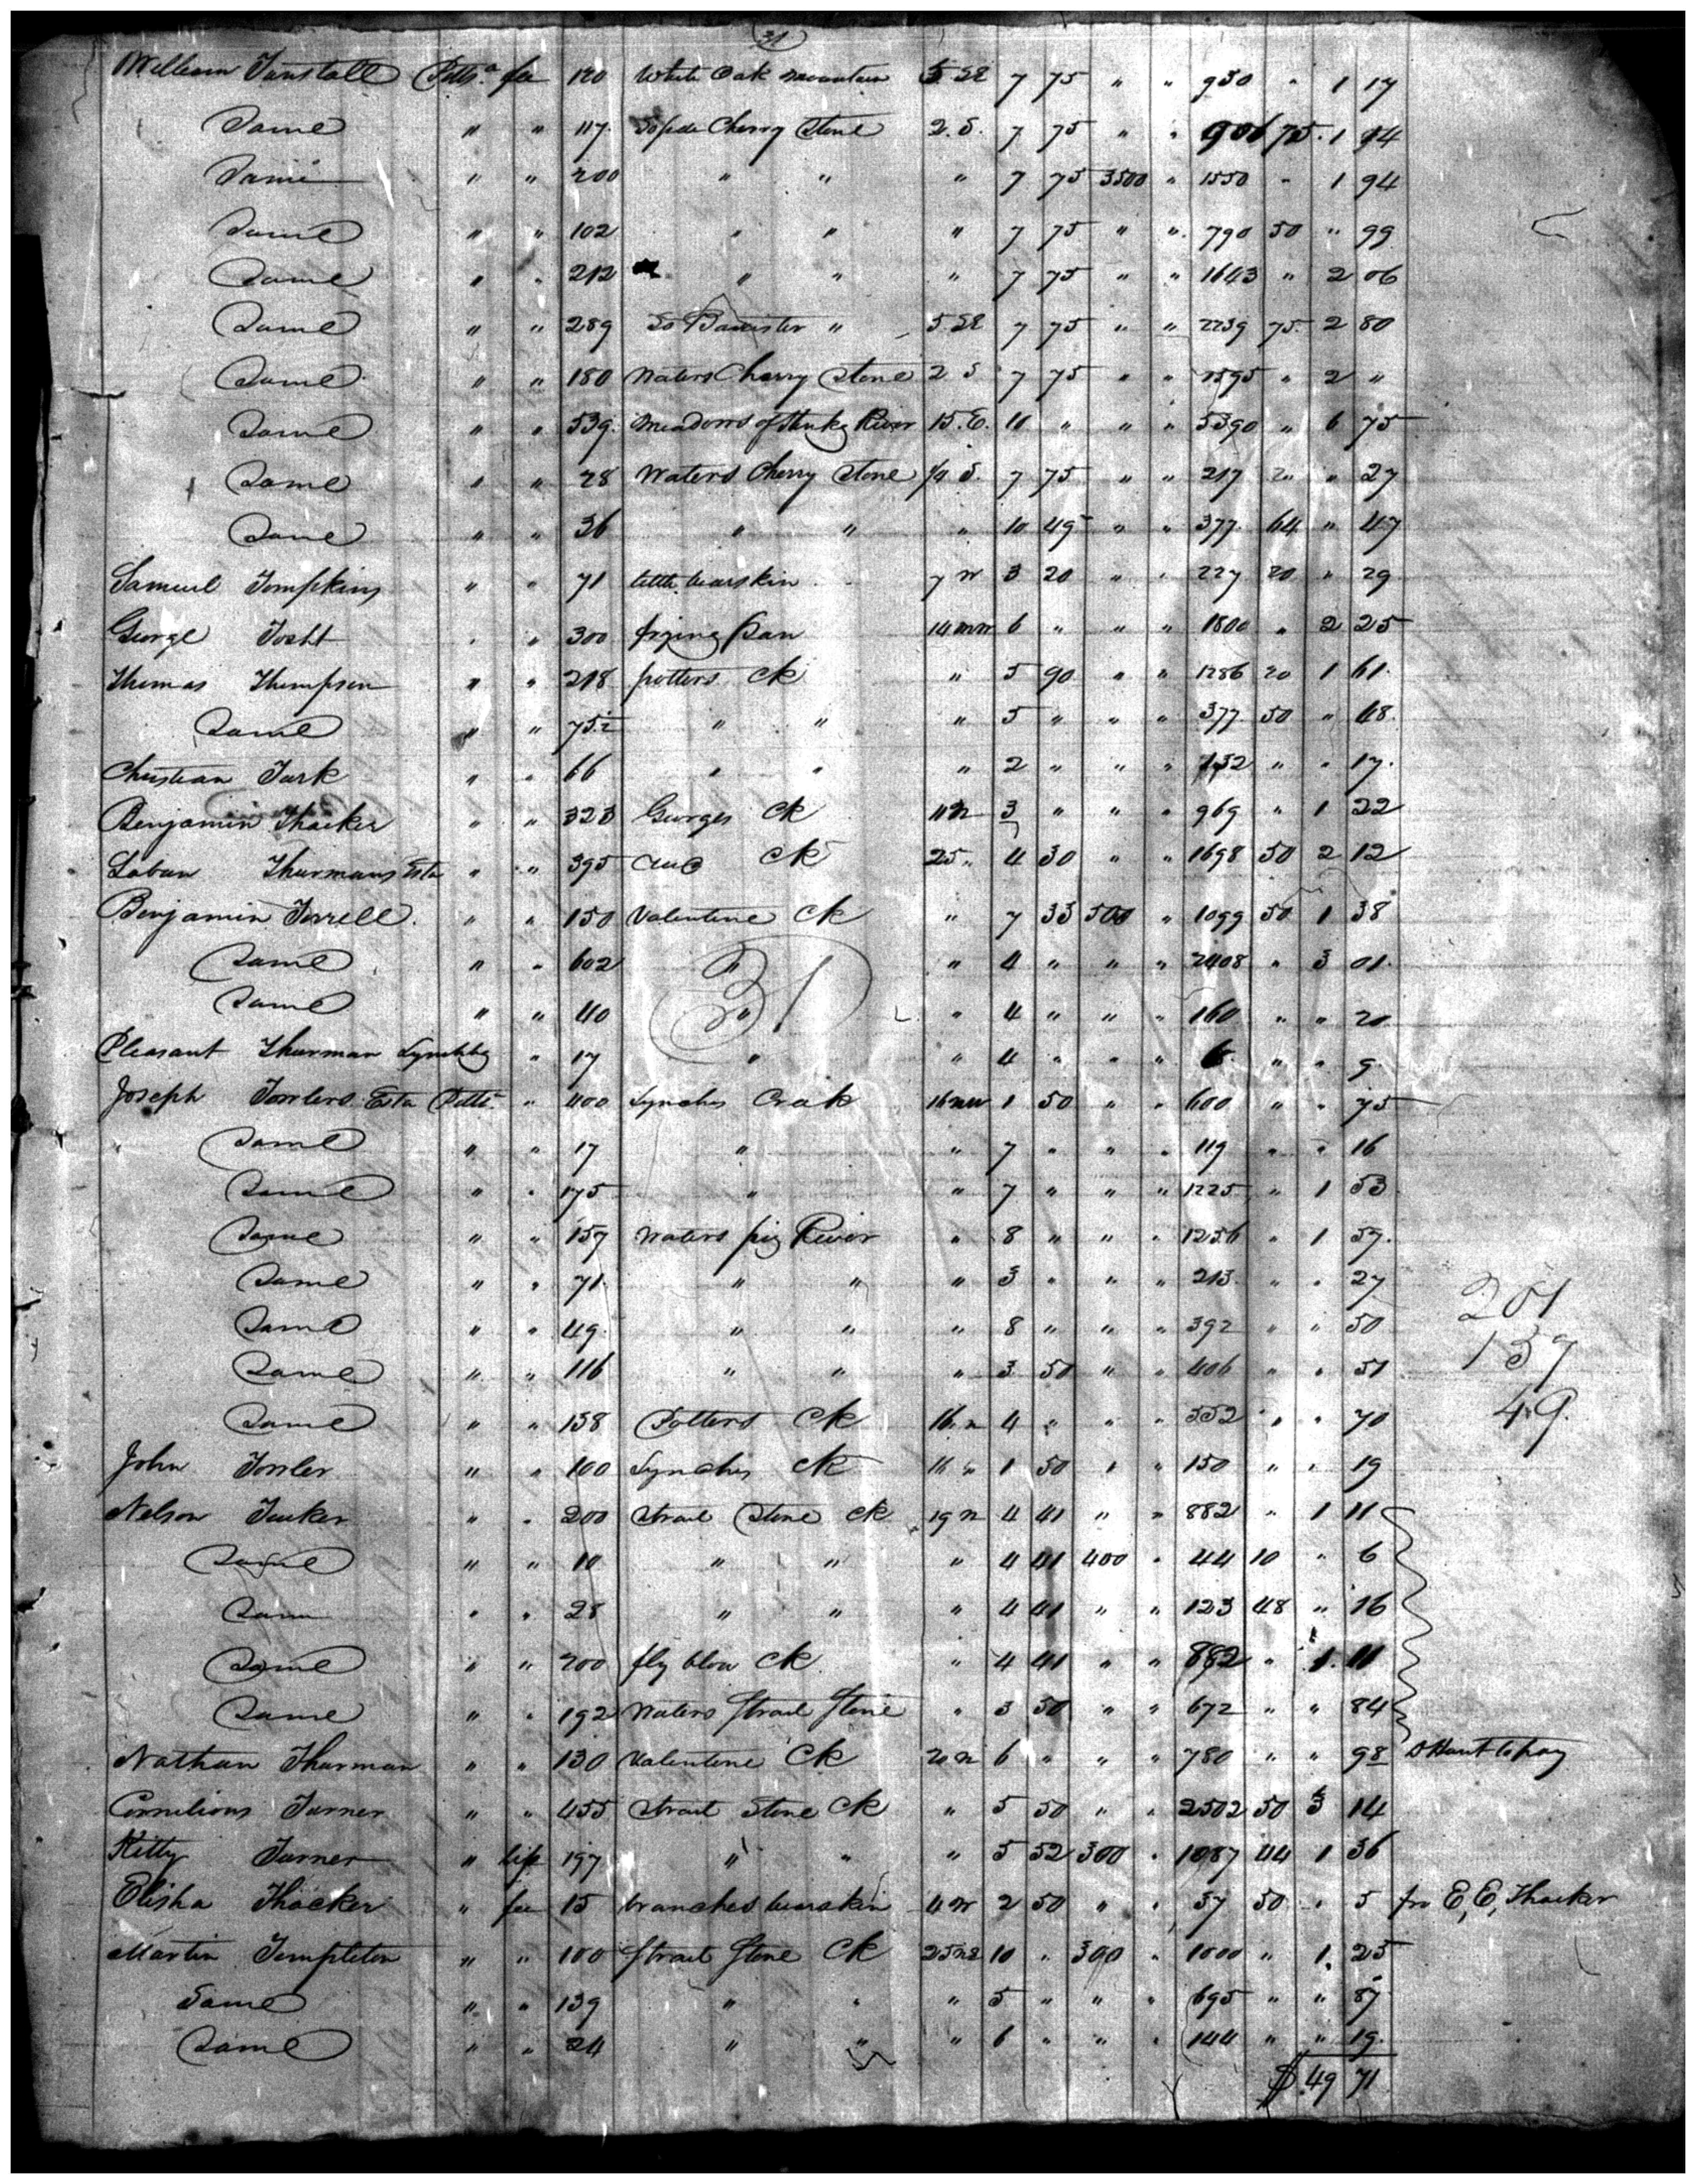 31
William Tunstall Pittsa fee 120 White Oak mountain 5 SE 7 75 " " 930 " 1 17
Same " " 117 So fide Cherry Stone 2. S. 7 75 " " 906 75 1 14
Same " " 200 " " " 7 75 3500 " 1550 " 1 94
Same " " 102 " " " 7 75 " " 790 50 " 99
Same " " 212 " " " 7 75 " " 1643 " 2 06
Same " " 289 So Banister " 5 SE 7 75 " " 2239 75 2 80
Same " " 180 Waters Cherry Stone 2 S 7 75 " " 1395 " 2 "
Same " " 539 Meadows of Stinkg River 15. E. 10 " " " 5390 " 6 75
Same " " 28 Waters Cherry Stone S. 7 75 " " 217 " " 27
Same " " 36 " " " 10 49 " " 377 64 " 47
Samuel Tompkins " " 71 little bearskin 7 W 3 20 " " 227 20 " 29
George Tosht " " 300 frying Pan 14 NW 6 " " " 1800 " 2 25
Thomas Thompson " " 218 potters Ck " 5 90 " " 1286 20 1 61
Same " " 75½ " " " 5 " " " 377 50 " 48
Christian Turk " " 66 " " " 2 " " " 132 " " 17
Benjamin Thacker " " 323 Georges Ck 11 N 3 " " " 969 " 1 22
Laban Thurmans Esta " " 395 Ck 25 " 4 30 " " 1698 50 2 12
Benjamin Terrell " " 150 Valentine Ck " 7 33 500 " 1099 50 1 38
Same " " 602 " " 4 " " " 2408 " 3 01
Same " " 40 " " 4 " " " 160 " " 20
31
Pleasant Thurman Lynchbg " 17 " " 4 " " " " " 9
Joseph Towlers Esta Pitts " 400 Lynches Creek 16 NW 1 50 " " 600 " " 75
Same " " 17 " " 7 " " " 119 " " 16
Same " " 175 " " 7 " " " 1225 " 1 53
Same " " 157 Waters pig River " 8 " " " 1256 " 1 57
Same " " 71 " " " 3 " " " 213 " " 27
201
Same " " 49 " " " 8 " " " 392 " " 50
137
Same " " 116 " " " 3 50 " " 406 " " 51
49
Same " " 138 Potters Ck 16 N 4 " " " 552 " " 70
John Towler " " 100 Lynches Ck 16 " 1 50 " " 150 " " 19
Nelson Tucker " " 200 Strait Stone Ck 19 N 4 41 " " 882 " 1 11
Same " " 10 " " " 4 41 400 " 44 10 " 6
Same " " 28 " " " 4 41 " " 123 48 " 16
Same " " 200 fly blow Ck " 4 41 " " 882 " 1 11
Same " " 192 Waters Strait Stone " 3 50 " " 672 " " 84
Nathan Thurman " " 130 Valentine Ck 20 N 6 " " " 780 " " 98 D Hunt to pay
Cornelious Turner " " 455 Strait Stone Ck " 5 50 " " 2502 50 3 14
Kitty Turner " life 197 " " " 5 52 300 " 1087 44 1 36
Elisha Thacker " fee 15 branches bearskin 4 W 2 50 " " 37 50 " 5 pr E, E, Thacker
Martin Templeton " " 100 Strait Stone Ck 25 NE 10 " 300 " 1000 " 1 25
Same " " 139 " " " 5 " " " 695 " " 87
Same " " 24 " " " 6 " " " 144 " " 19
$ 49 71